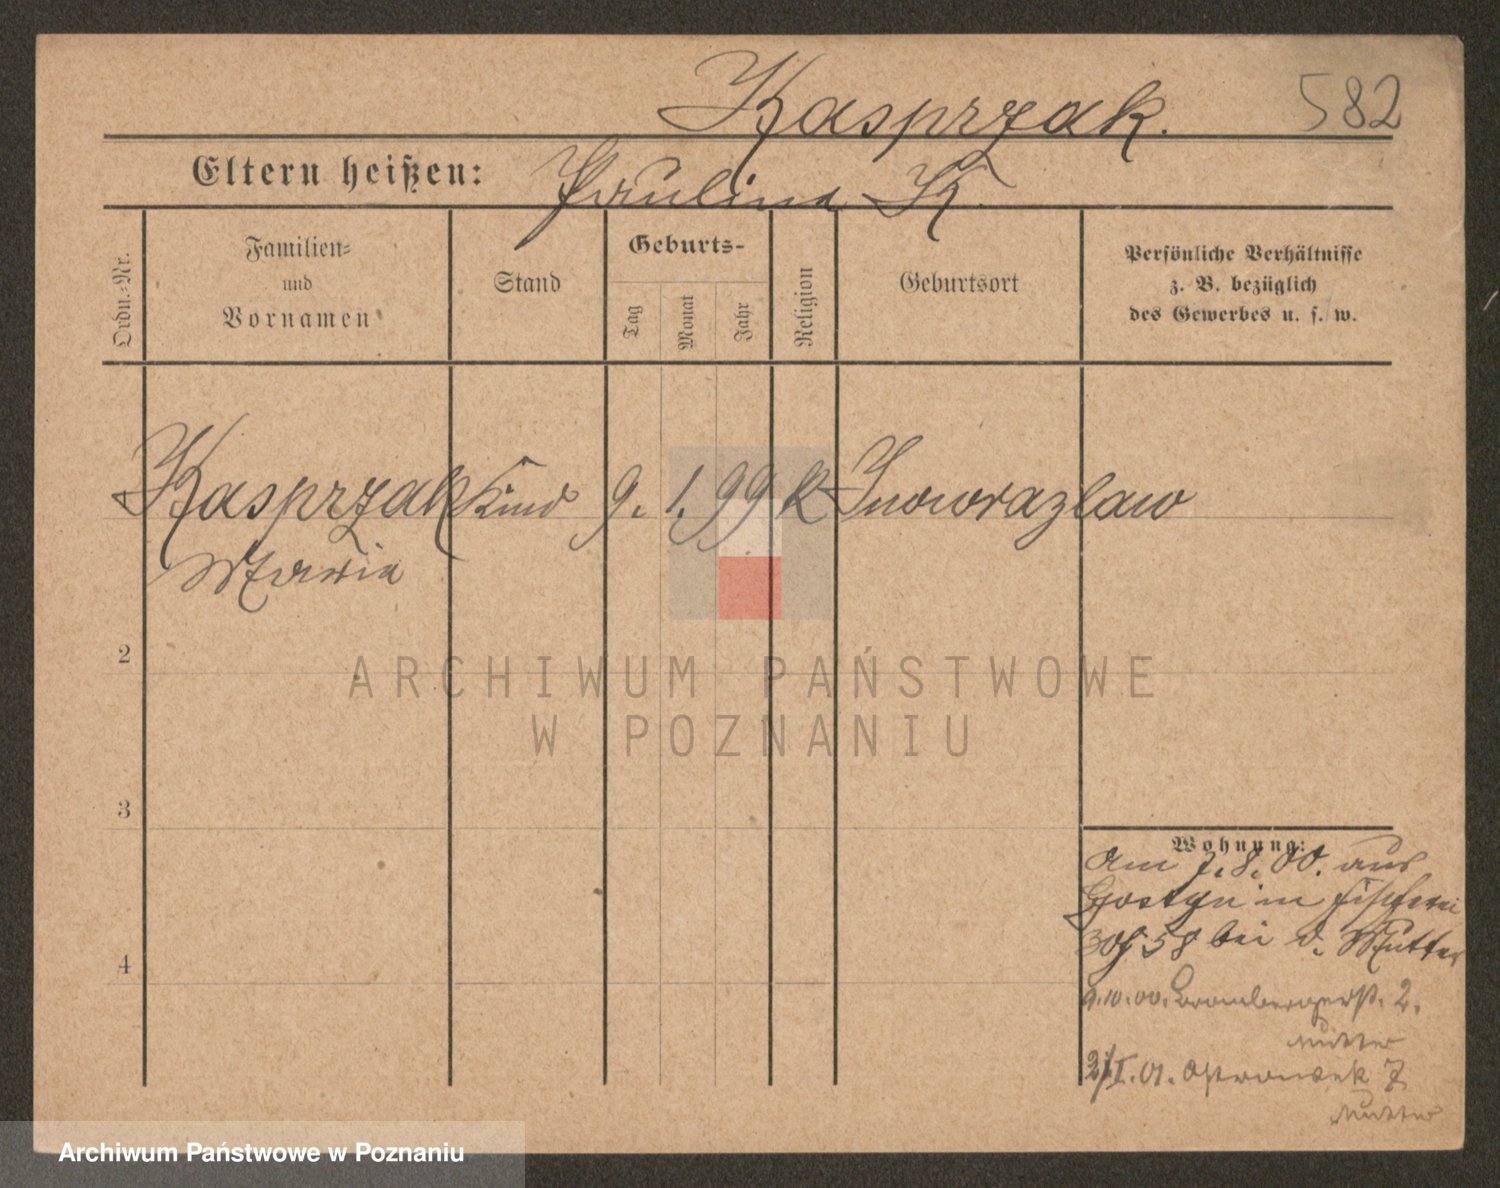 Kasprzak. 582
Eltern heißen: Paulina K.
Ordn.-Nr.
Familien-
und
Vornamen
Stand
Geburts-
Tag
Monat
Jahr
Religion
Geburtsort
Persönliche Verhältnisse
z. B. bezüglich
des Gewerbes u. s. w.
Kasprzak Kind 9. 1. 99 k Inowrazlaw
Maria
2
ARCHIWUM PAŃSTWOWE
W POZNANIU
3
Wohnung:
Am 7.8.00. aus
Gostyn in Fischerei
58 bei d. Mutter
4
9.10.00. Brombergerst. 2.
Mutter
21/I.01. Ostrowek 7
Mutter
Archiwum Państwowe w Poznaniu